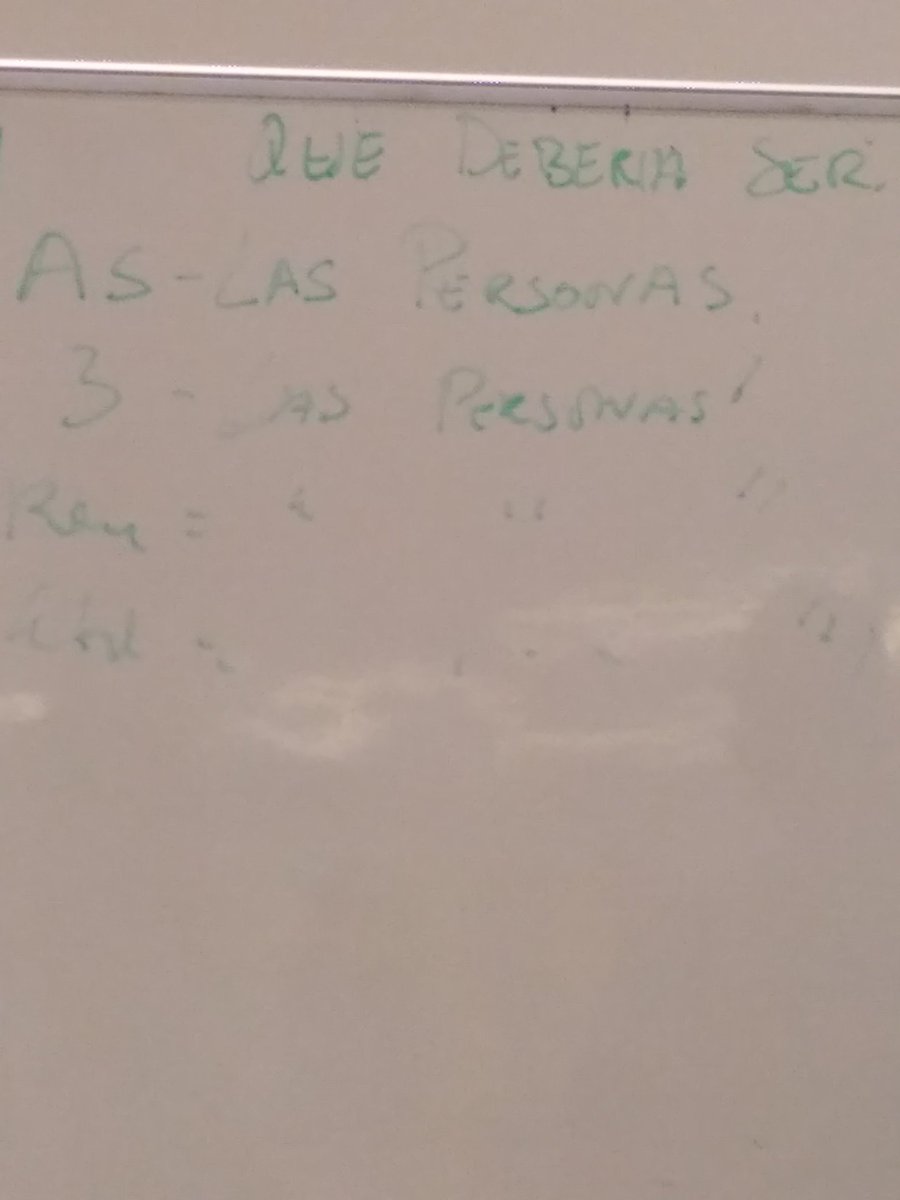 QUE DEBERIA SER.
AS - LAS PERSONAS.
3 - LAS PERSONAS
Rey = " " "